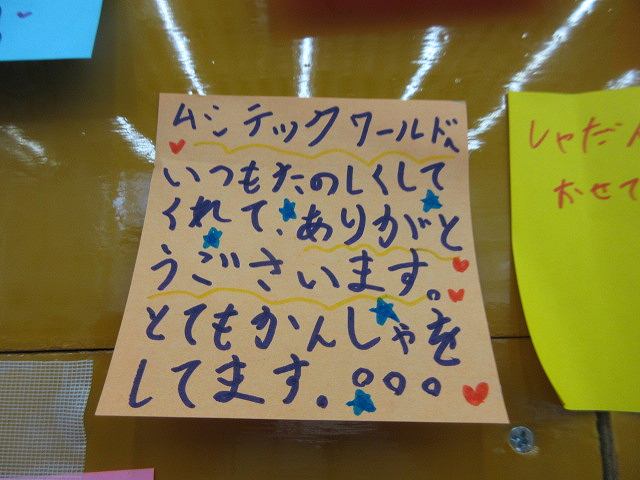 ムシテックワールドへ
いつもたのしくして
くれて、ありがと
うございます。
とてもかんしゃを
してます。。。。
しゃだん
おせて